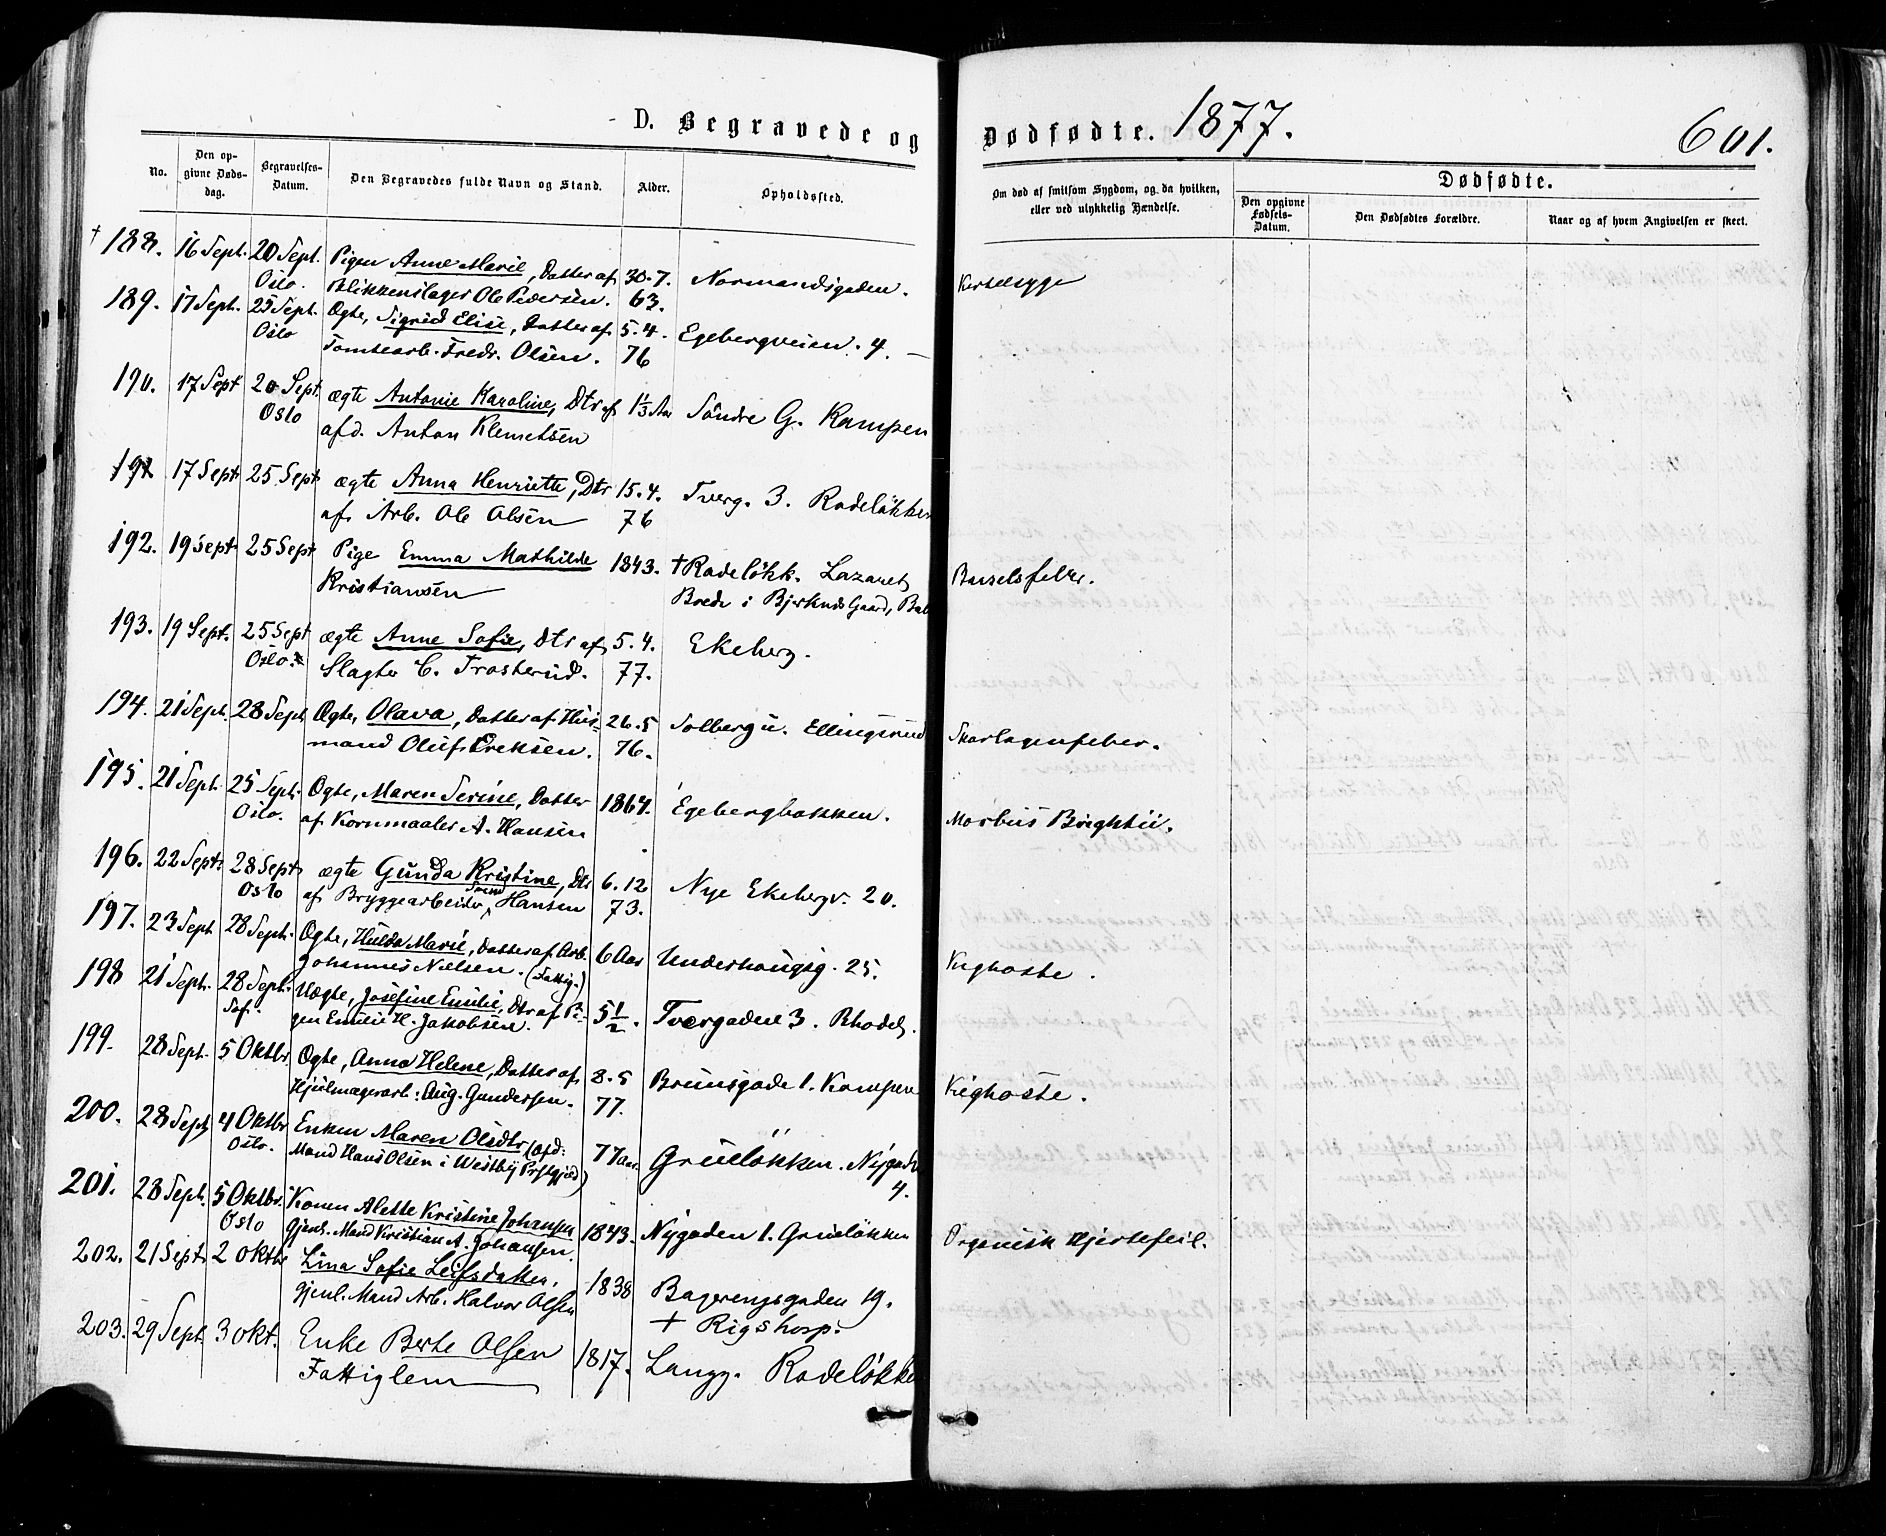 D. Begravede og Dødfødte. 1877. 601.
No.
Den opgivne Dødsdag.
Begravelses-Datum.
Den Begravedes fulde Navn og Stand.
Alder.
Opholdssted.
Om død af smitsom Sygdom, og da hvilken,
eller ved ulykkelig Hændelse.
Dødfødte.
Den opgivne Fødsels-Datum.
Den Dødfødtes Forældre.
Naar og af hvem Angivelsen er skeet.
† 188. 16 Sept. 20 Sept. Pigen Anne Marie, Datter af 30.7. Normandsgaden. Kertelsyge
Oslo. Blikkenslager Ole Pedersen. 63.
189. 17 Sept. 25 Sept. Ægte, Sigrid Elise, Datter af 5.4. Egebergveien. 4. —
Oslo Tomtearb. Fredr. Olsen. 76
190. 17 Sept 20 Sept. ægte Antonie Karoline, Dtr af 1 1/3 Aar Söndre G. Kampen
Oslo afd. Anton Klemetsen
191 17 Sept 25 Sept ægte Anna Henriette, Dtr 15.4. Tverg. 3. Rodelökken
af Arb. Ole Olsen 76
192. 19 Sept 25 Sept Pige Emma Mathilde 1843. † Rodelökk. Lazaret Barselsfeber.
Kristiansen Boede i Gaard,
193. 19 Sept. 25 Sept ægte Anne Sofie, Dtr af 5.4. Ekeberg.
Oslo. Slagter C. Trosterud. 77.
194. 21 Sept. 28 Sept Ægte, Olava, Datter af Hus- 26.5 Solberg u. Ellingsrud Skarlagensfeber.
mand Oluf Ereksen. 76.
195. 21 Sept. 25 Sept. Ægte, Maren Serine, Datter 1864. Egebergbakken. Morbus Brightii.
Oslo. af Kornmaaler A. Hansen
196. 22 Sept. 28 Sept ægte Gunda Kristine, Dtr 6.12 Nye Ekebergv. 20.
Oslo af Bryggearbeider Hansen 73.
197. 23 Sept 28 Sept. Ægte, Hulda Marie, Datter af Arb. 6 Aar Underhaugsg. 25. Kighoste.
Johannes Nielsen. (Fattig.)
198 21 Sept. 28 Sept. Uægte, Josefine Emilie, Dtr af Pi- 5 1/2. Tvergaden 3. Rhodel.
gen Emilie H. Jakobsen.
199. 28 Sept. 5 Oktbr. Ægte, Anna Helene, Datter af 8.5 Brunsgade 1. Kampen Kighoste.
Hjulmagerarb: Aug. Gundersen. 77.
200. 28 Sept. 4 Oktbr Enken Maren Olsdtr (afd: 77 Aar. Grüelökken. Nygade
Oslo. Mand Hans Olsen i Westby Prstgjeld) 4.
201. 28 Sept. 5 Oktbr. Konen Alette Kristine Johansen 1843. Nygaden 1. Grüelökken Organisk Hjertefeil.
Oslo Gjenl. Mand Kristian A. Johansen.
202. 21 Sept. 2 Oktbr Lina Sofie Leifsdatter. 1838 Bagerengsgaden 19.
gjenl. Mand Arb. Halvor Olsen † Rigshosp.
203. 29 Sept. 3 Okt. Enke Berte Olsen 1817. Langg. Rodelökken
Fattiglem